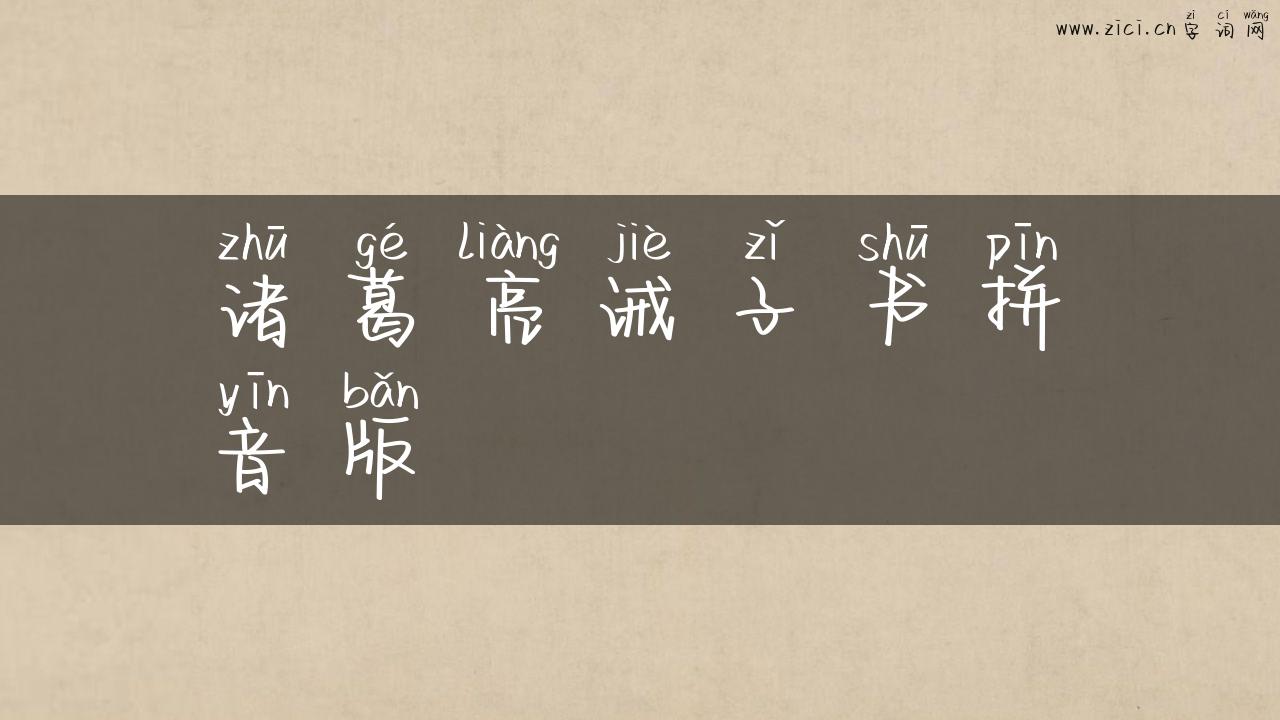 zì cí wǎng
www.zici.cn 字词网
zhū gé liàng jiè zǐ shū pīn
诸葛亮诫子书拼
yīn bǎn
音版